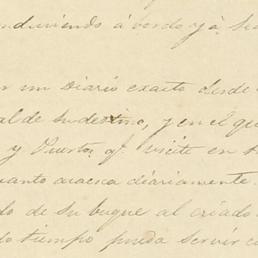 nduciendo á bordo y á su
r un Diario exacto desde
al de su destino, y en el que
y Puertos q.e visite en
uanto acaesca diariamente.
do de su buque al criado
lo tiempo pueda servir